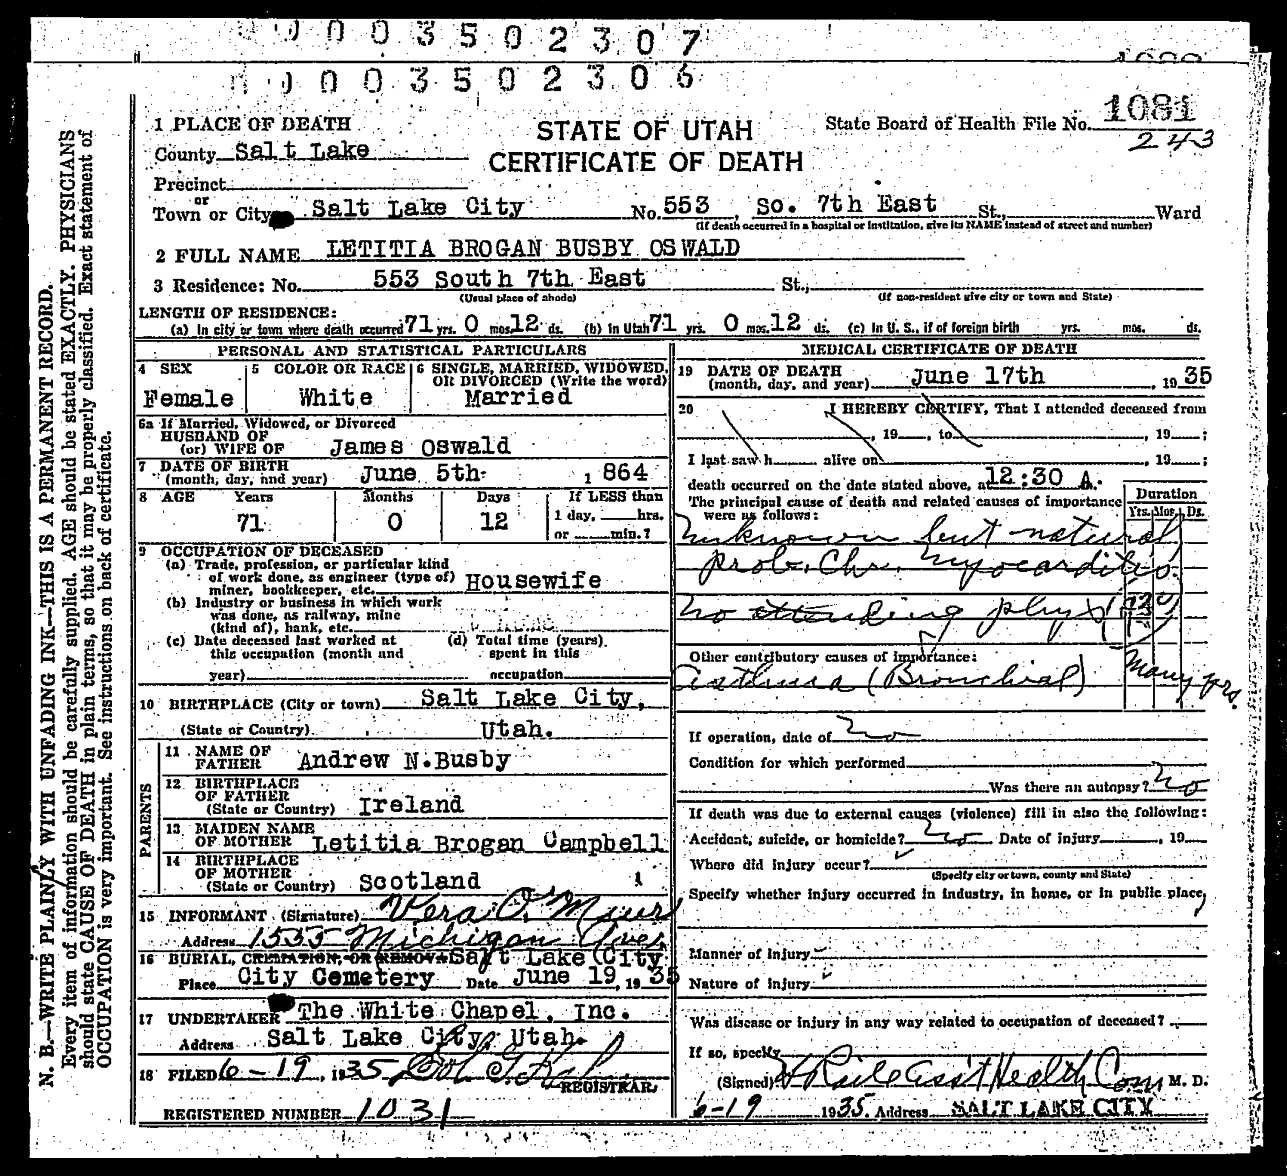 0003502307
0003502306
1 PLACE OF DEATH
County Salt Lake
Precinct
or
Town or City Salt Lake City No. 553, So. 7th East St., Ward
(If death occurred in a hospital or institution, give its NAME instead of street and number)
STATE OF UTAH
CERTIFICATE OF DEATH
State Board of Health File No. 1081
243
2 FULL NAME LETITIA BROGAN BUSBY OSWALD
3 Residence: No. 553 South 7th East St.,
(Usual place of abode) (If non-resident give city or town and State)
LENGTH OF RESIDENCE:
(a) In city or town where death occurred 71 yrs. 0 mos. 12 ds. (b) In Utah 71 yrs. 0 mos. 12 ds. (c) In U. S., if of foreign birth yrs. mos. ds.
PERSONAL AND STATISTICAL PARTICULARS
4 SEX
Female
5 COLOR OR RACE
White
6 SINGLE, MARRIED, WIDOWED,
OR DIVORCED (Write the word)
Married
6a If Married, Widowed, or Divorced
HUSBAND OF
(or) WIFE OF James Oswald
7 DATE OF BIRTH
(month, day, and year) June 5th 1864
8 AGE Years Months Days If LESS than
71 0 12 1 day, hrs.
or min.?
9 OCCUPATION OF DECEASED
(a) Trade, profession, or particular kind
of work done, as engineer (type of)
miner, bookkeeper, etc. Housewife
(b) Industry or business in which work
was done, as railway, mine
(kind of), bank, etc.
(c) Date deceased last worked at
this occupation (month and
year)
(d) Total time (years)
spent in this
occupation
10 BIRTHPLACE (City or town) Salt Lake City,
(State or Country) Utah.
PARENTS
11 NAME OF
FATHER Andrew N. Busby
12 BIRTHPLACE
OF FATHER
(State or Country) Ireland
13 MAIDEN NAME
OF MOTHER Letitia Brogan Campbell
14 BIRTHPLACE
OF MOTHER
(State or Country) Scotland
15 INFORMANT (Signature) Vera O. Muir
Address 1555 Michigan Ave,
16 BURIAL, CREMATION, OR REMOVAL Salt Lake City
Place City Cemetery Date June 19, 1935
17 UNDERTAKER The White Chapel, Inc.
Address Salt Lake City, Utah.
18 FILED 6-19, 1935
REGISTRAR
REGISTERED NUMBER 1031
MEDICAL CERTIFICATE OF DEATH
19 DATE OF DEATH
(month, day, and year) June 17th, 1935
20 I HEREBY CERTIFY, That I attended deceased from
, 19 , to , 19 ;
I last saw h alive on , 19 ;
death occurred on the date stated above, at 12:30 A.
The principal cause of death and related causes of importance
were as follows:
Duration
Yrs. Mos. Ds.
Unknown but natural
Prob. Chr. Myocarditis
No attending phys
Other contributory causes of importance:
Asthma (Bronchial) Many yrs.
If operation, date of No
Condition for which performed
Was there an autopsy? No
If death was due to external causes (violence) fill in also the following:
Accident, suicide, or homicide? No Date of injury , 19
Where did injury occur?
(Specify city or town, county and State)
Specify whether injury occurred in industry, in home, or in public place,
Manner of injury
Nature of injury
Was disease or injury in any way related to occupation of deceased?
If so, specify
(Signed) Asst Health Com M. D.
6-19 1935. Address SALT LAKE CITY
N. B.—WRITE PLAINLY WITH UNFADING INK—THIS IS A PERMANENT RECORD.
Every item of information should be carefully supplied. AGE should be stated EXACTLY. PHYSICIANS
should state CAUSE OF DEATH in plain terms, so that it may be properly classified. Exact statement of
OCCUPATION is very important. See instructions on back of certificate.